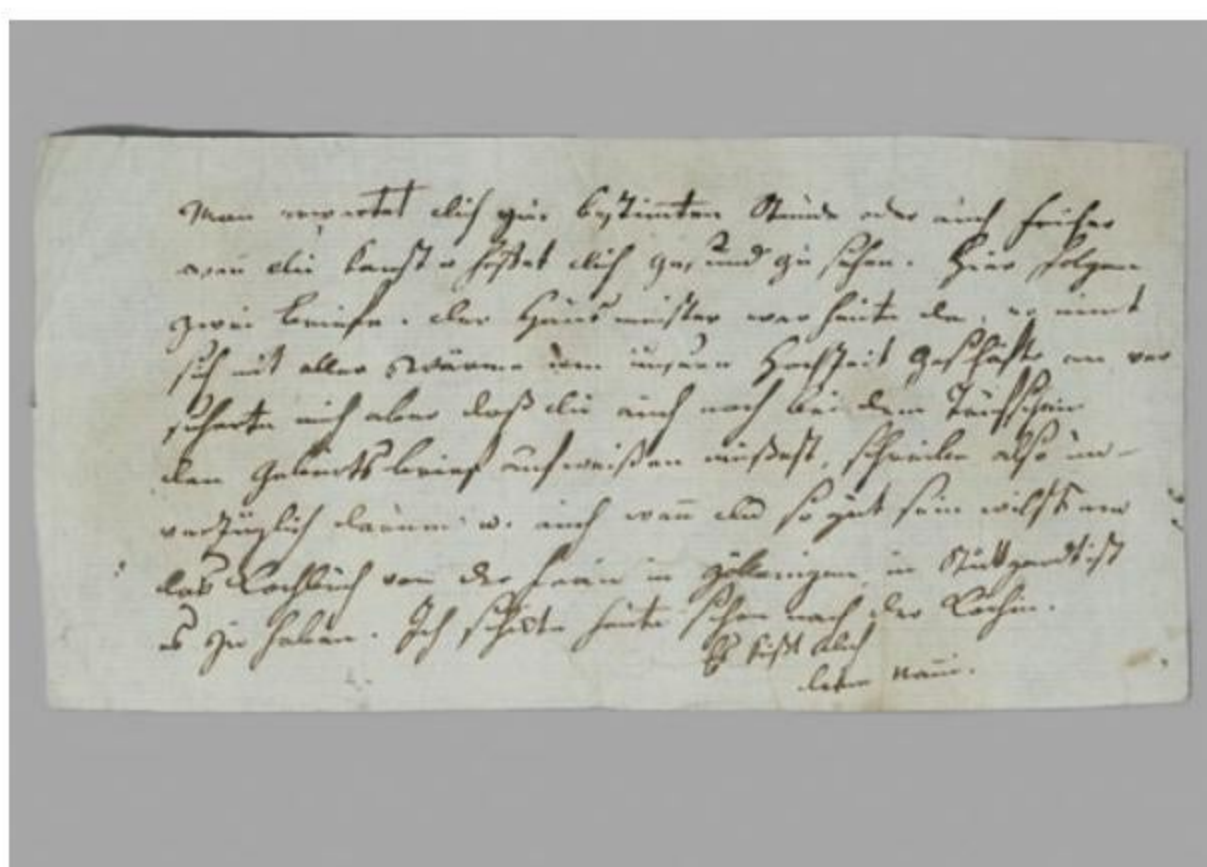 Man erwartet dich zur bestimten Stunde oder auch früher
wen du kanst u hoffet dich gesund zu sehen. Hier folgen
zwei briefe. der Hausmeister war heute da, er nimt
sich mit aller Wärme dem unsern Hochzeit Geschäfte an ver
sicherte mich aber daß du auch noch bei dem Taufschein
den Geburtsbrief aufweißen müßest, schreibe also un-
verzüglich darum. u. auch wen du so gut sein wilst um
das Kochbuch von der Frau in in Stuttgardt ist
es zu haben. Ich schikte heute schon nach der Köchin.
Es küßt dich
deine Nani.